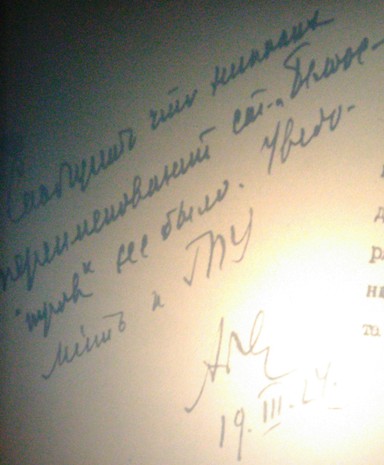 Сообщить что никаких
переименований ст. „Белоос-
тров“ не было. Уведо-
мить и ГПУ
19.III.24.